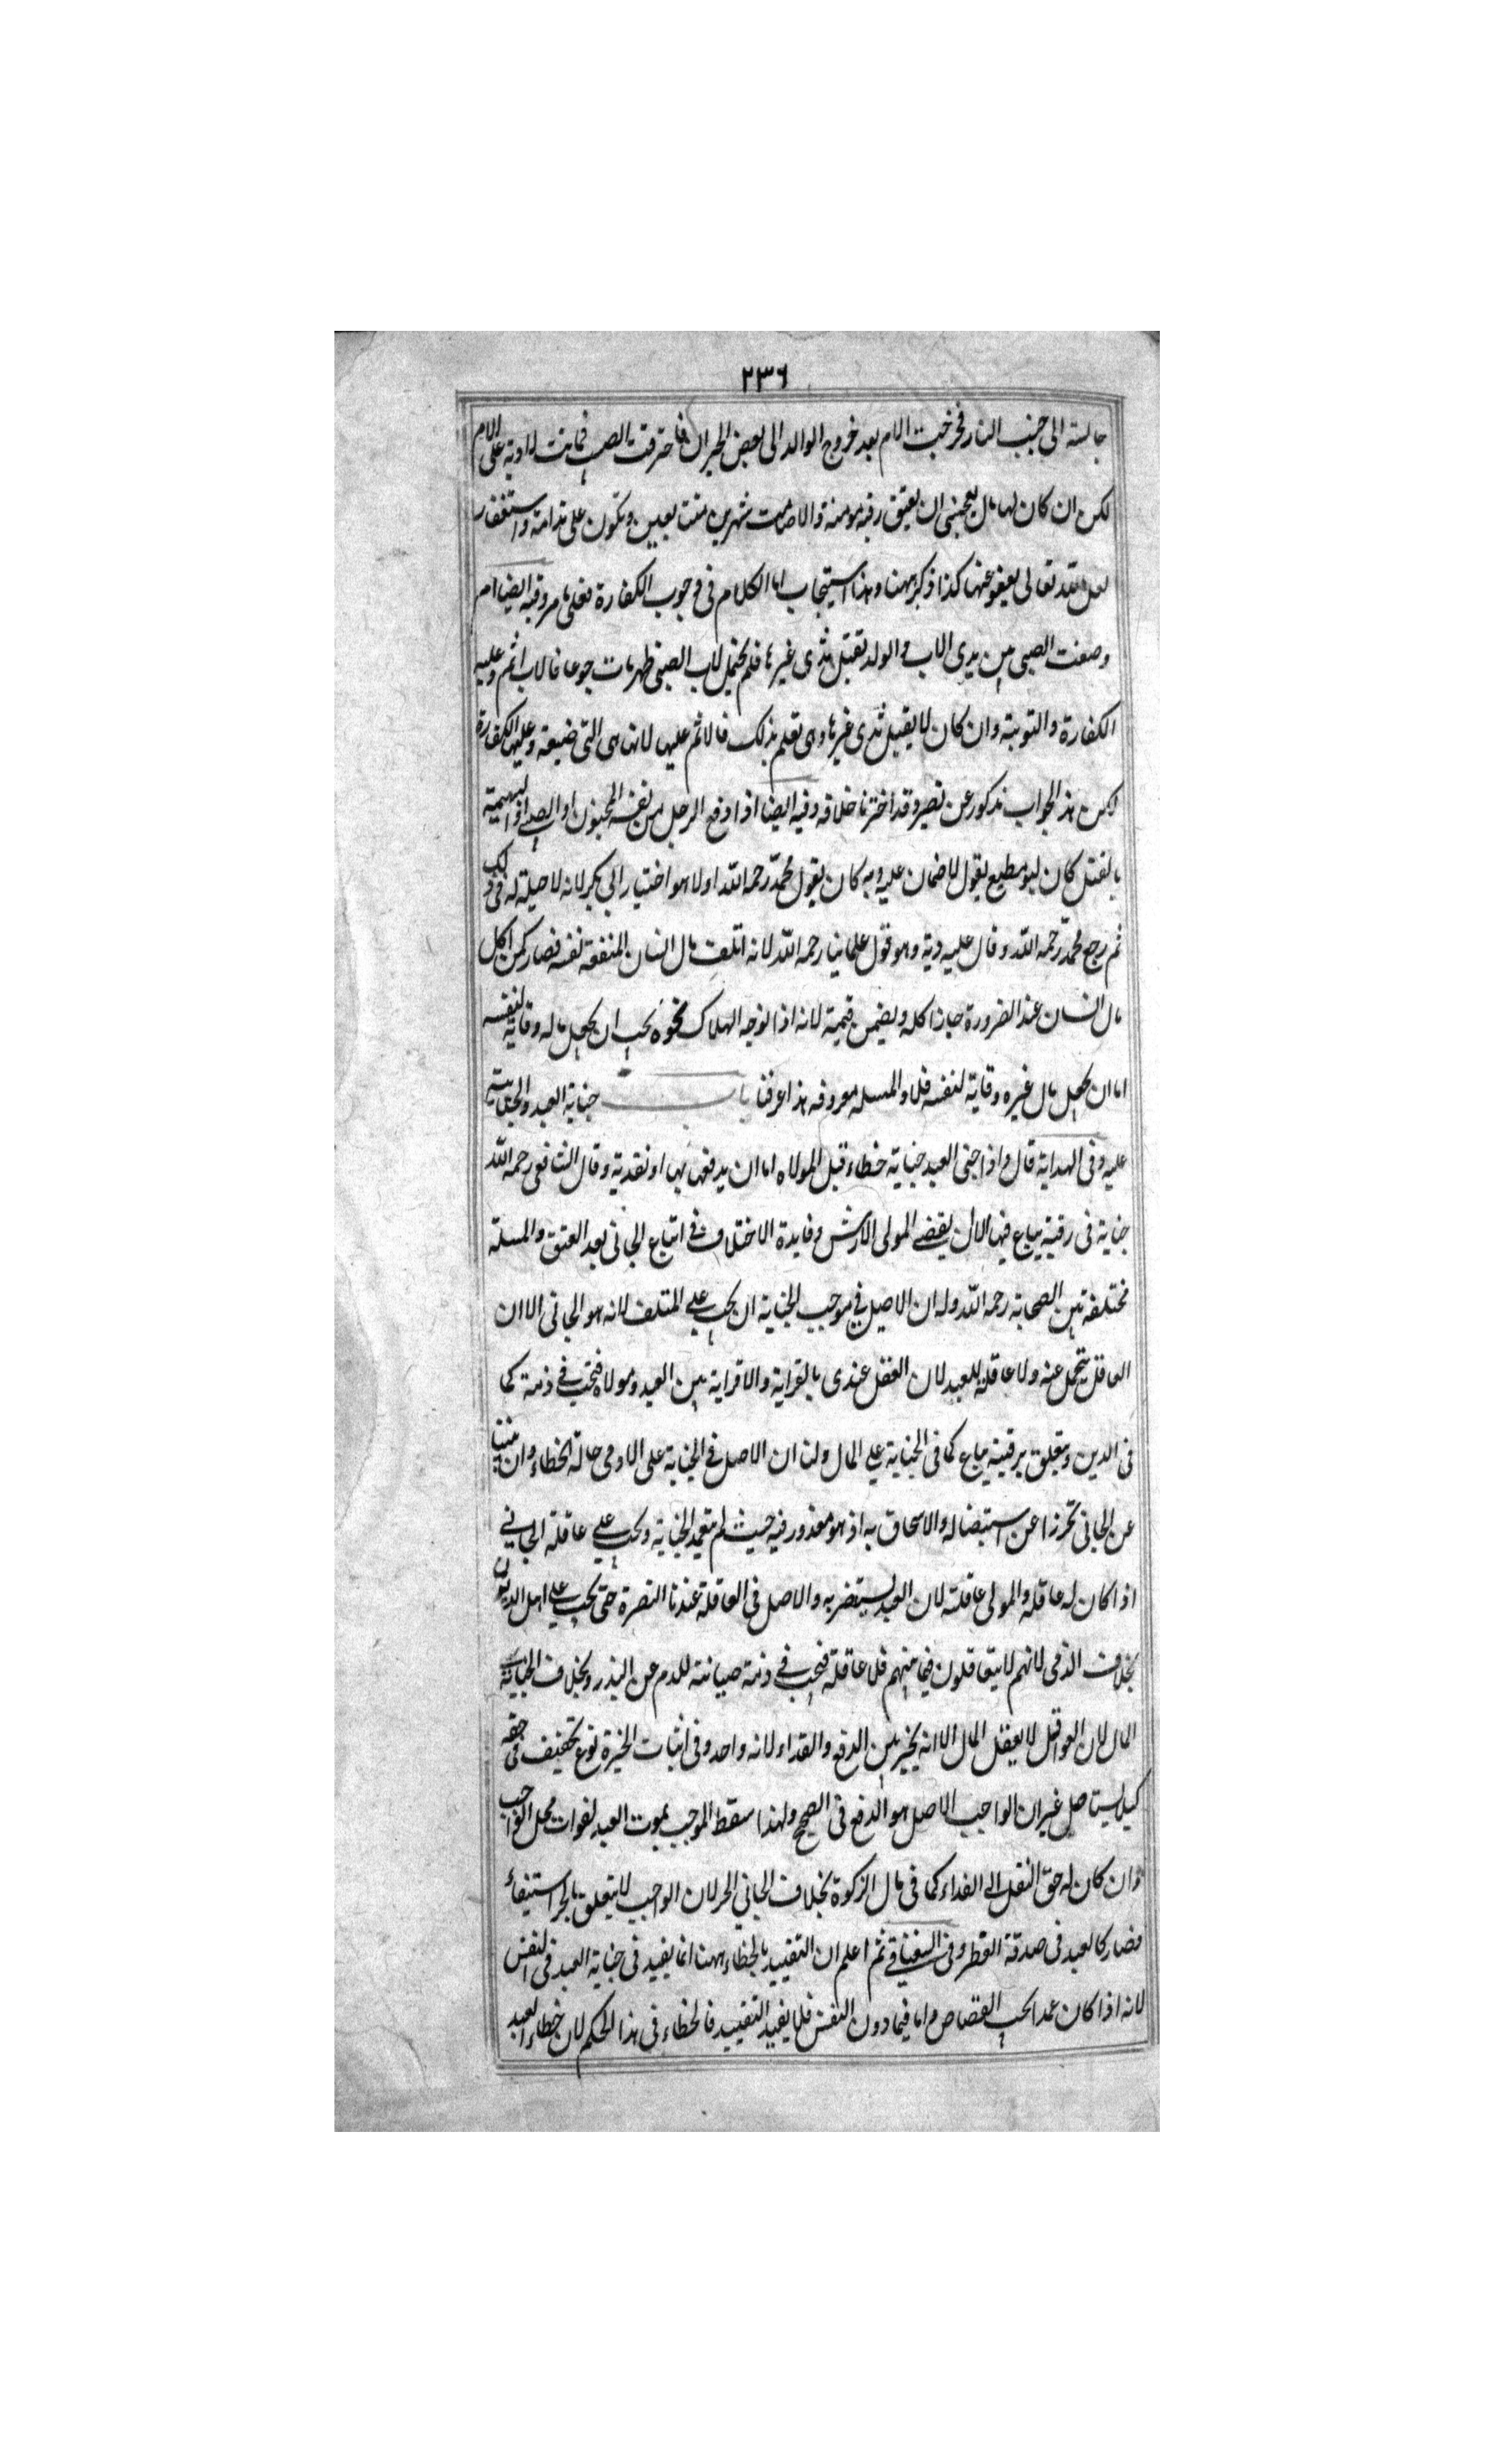 ٢٣٦
جالسة الى جنب النار فخرجت الام بعد خروج الوالد الى بعض الجيران فاحترقت الصبية فماتت لا دية على الام
لكن ان كان لها مال يعجبنى ان يعتق رقبة مومنة والا صامت شهرين متتابعين وتكون على ندامة واستغفار
لعل الله تعالى يعفو عنها كذا ذكر ههنا وهذا استحباب اما الكلام فى وجوب الكفارة فعلى ما مر وفيه ايضا امر
وضعت الصبى بين يدى الاب والولد تقبل ثدى غيرها فلم يحتمل لاب الصبى ظهر مات جوعا فالاب اثم وعليه
الكفارة والتوبة وان كان لا يقبل ثدى غيرها وهى تعلم بذلك فالاثم عليها لانها هى التى ضيعته وعليها الكفارة
لكن هذا الجواب مذكور عن نصير وقد اخترنا خلافه وفيه ايضا اذا دفع الرجل من نفسه المجنون او الصبى او البهيمة
بالقتل كان ابو مطيع يقول لا ضمان عليه وبه كان يقول محمد رحمه الله اولا هو اختيار ابى بكر لانه لا حيلة له فى ذلك
ثم رجع محمد رحمه الله وقال عليه دية وهو قول علمائنا رحمه الله لانه اتلف مال انسان لمنفعة نفسه فصار كمن اكل
مال انسان عند الضرورة جاز اكله ويضمن قيمته لانه اذا توجه الهلاك نحوه يجب ان يجعل ماله وقاية لنفسه
اما ان يجعل مال غيره وقاية لنفسه فلا والمسلة معروفة هذا عرفنا باب جناية العبد والجناية
عليه وفى الهداية قال واذا جنى العبد جناية خطاء قيل لمولاه اما ان يدفعه بها او تفديه وقال الشافعى رحمه الله
جناية فى رقبته يباع فيها الا ان يقضى المولى الارش وفايدة الاختلاف فى اتباع الجانى بعد العتق والمسلة
مختلفة بين الصحابة رحمه الله وله ان الاصل فى موجب الجناية ان يجب على المتلف لانه هو الجانى الا ان
العاقلة يتحمل عنه ولا عاقلة للعبد لان العقل عندى بالقرابة والا قرابة بين العبد ومولاه فتجب فى ذمته كما
فى الدين ويتعلق برقبته يباع كما فى الجناية على المال ولنا ان الاصل فى الجناية على الادمى حالة الخطاء وان
عن الجانى تحرزا عن استيصاله والاجحاف به اذ هو معذور فيه حيث لم يتعمد الجناية ويجب على عاقلة الجانى
اذا كان له عاقلة والمولى عاقلته لان العبد يستنصر به والاصل فى العاقلة عندنا النصرة حتى يجب على اهل الديوان
بخلاف الذمى لانهم لا يتعاقلون فيما بينهم فلا عاقلة فتجب فى ذمته صيانة للدم عن الهدر وبخلاف الجناية
المال لان العواقل لا يعقل المال الا انه يخير بين الدفع والفداء لانه واحد وفى اثبات الخيرة نوع تخفيف فى حقه
كيلا يستاصل غير ان الواجب الاصل هو الدفع فى الصحيح ولهذا سقط الموجب بموت العبد لفوات محل الواجب
وان كان له حق النقل الى الفداء كما فى مال الزكوة بخلاف الجانى الحر لان الواجب لا يتعلق بالحر استيفاء
فصار كالعبد فى صدقة الفطر وفى السغناقى ثم اعلم ان التقييد بالخطاء ههنا انما يفيد فى جناية العبد فى النفس
لانه اذا كان عمدا يجب القصاص واما فيما دون النفس فلا يفيد التقييد فالخطاء فى هذا الحكم لان خطاء العبد